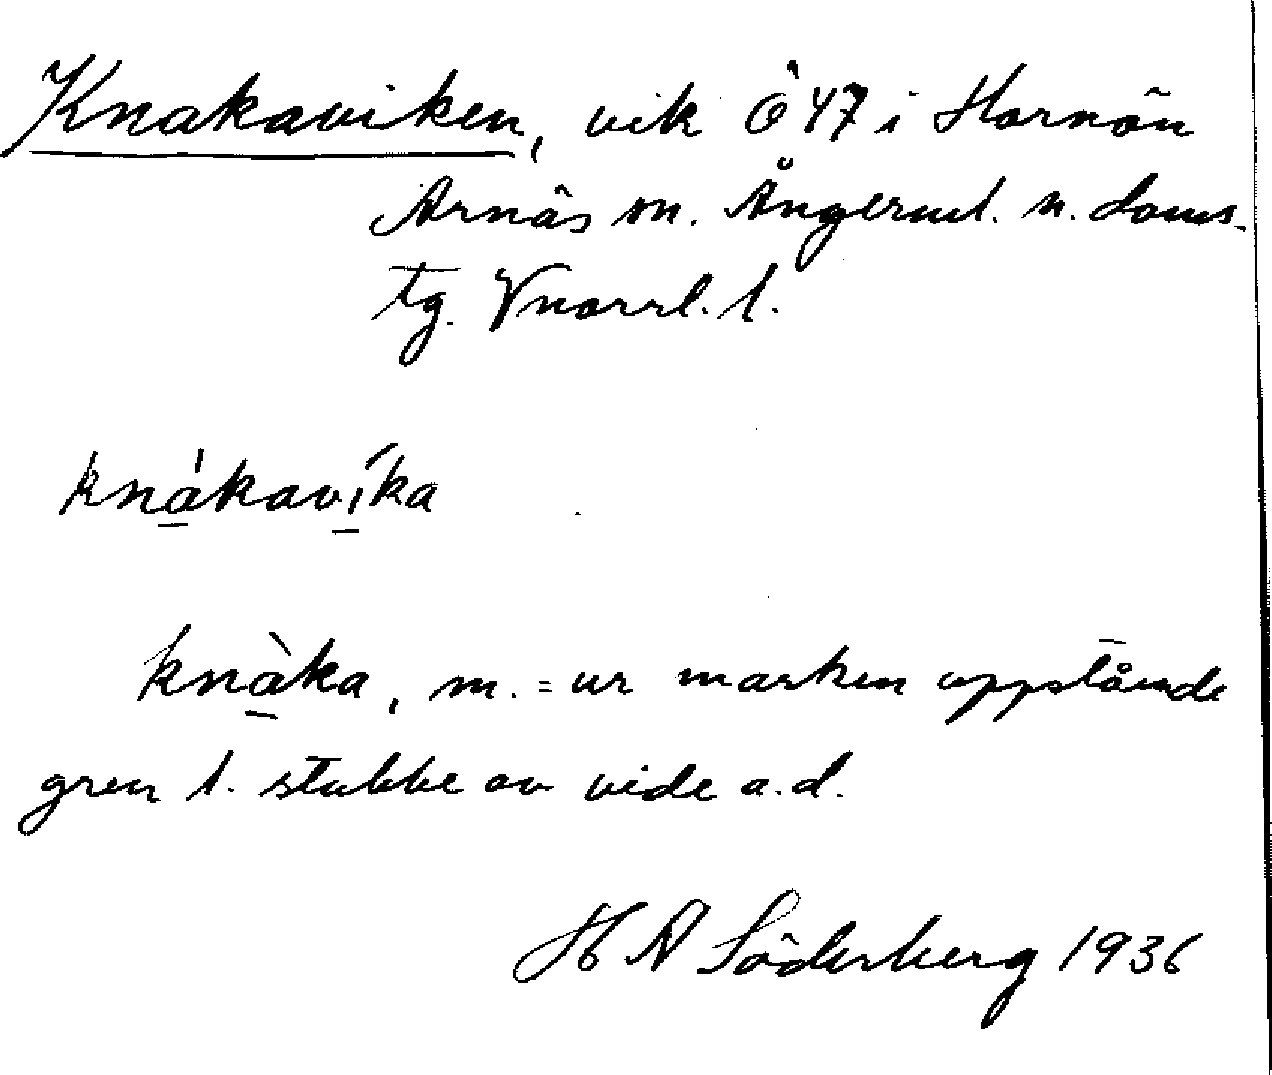 Knakaviken, vik Ö 47 i Hornön
Arnäs sn. Ångerml. n. doms.
tg. Vnorrl. l.
knákavíka
knàka, m. = ur marken uppstående
gren l. stubbe av vide o.d.
H A Söderberg 1936